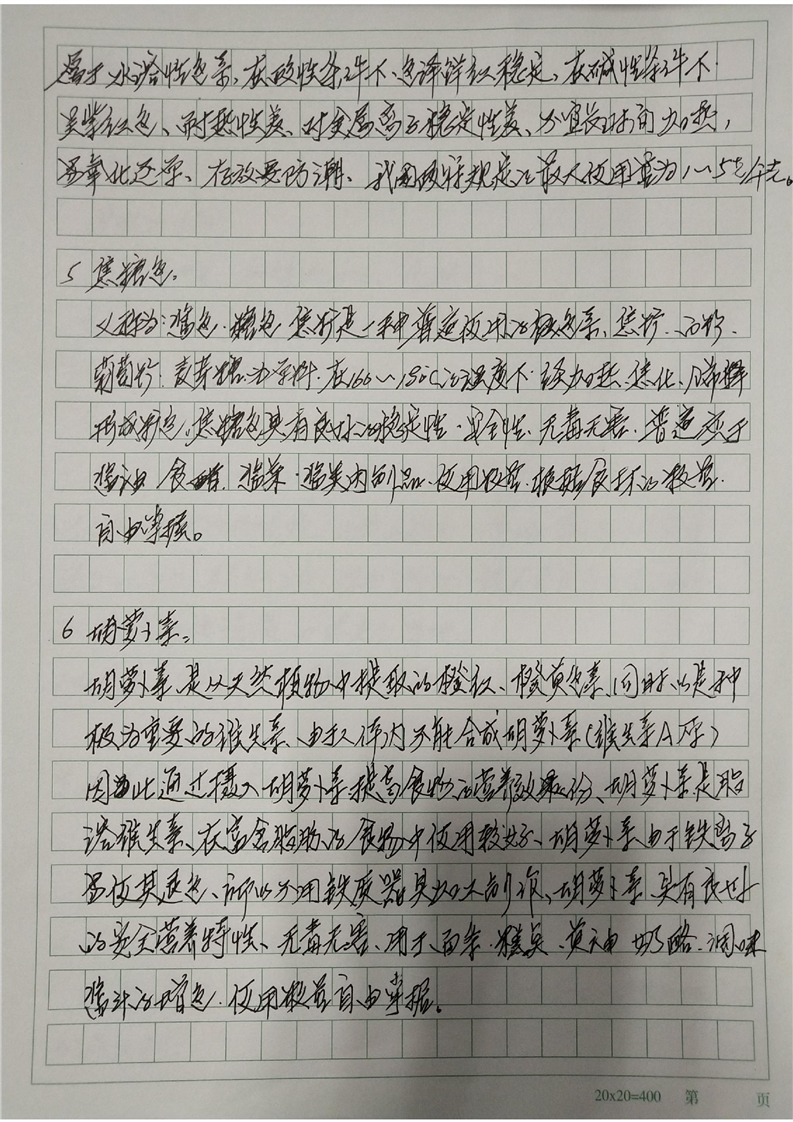 属于水溶性色素，在酸性条件下、色泽鲜红稳定，在碱性条件下
呈紫红色、耐热性差、对金属离子稳定性差、不宜长时间加热，
易氧化还原、存放要防潮、我国政府规定的最大使用量为1～5克/千克。
5 焦糖色。
又称为：酱色．糖色 焦糖是一种普遍使用的色素、焦糖．
葡萄糖．麦芽糖为原料．在160～180℃的温度下．经加热、焦化、
焦糖色具有良好的稳定性．安全性．无毒无害．普遍应于
酱油 食醋．酱菜．酱类肉制品．使用数量．根据食坏的数量．
自由掌握。
6 胡萝卜素。
胡萝卜素是从天然植物中提取的橙红、橙黄色素、同时以是种
极为重要的维生素、由于人体内不能合成胡萝卜素（维生素A原）
因为此通过摄入胡萝卜素提高食物的营养成份、胡萝卜素是脂
溶维生素、在富含脂肪的食物中使用较好、胡萝卜素由于铁离子
易使其退色、所以不用铁质器具加工制作、胡萝卜素具有良好
的安全营养特性、无毒无害、用于面条．糕点．黄油 奶酪．调味
酱汁的增色．使用数量自由掌握。
20x20=400 第 页